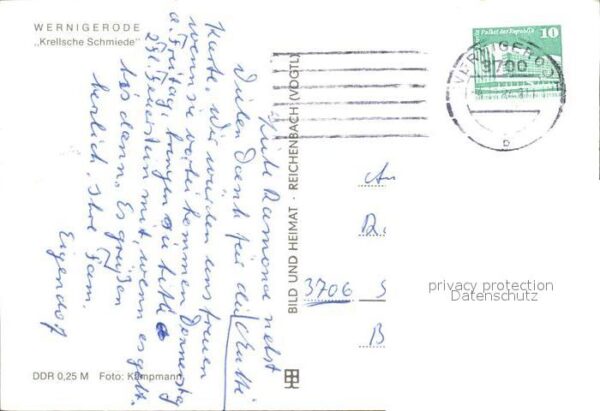 WERNIGERODE
„Krellsche Schmiede"
Liebe Ramona nebst
Vielen Dank für die
Karte, wir würden uns freuen
wenn sie vorbei kommen Donnerstag
o. Freitag, bringen sie bitte
mit, wenn es geht.
bis dann. Es grüßen
herzlich, Ihre Fam.
Eigendorf
BILD UND HEIMAT · REICHENBACH (VOGTL)
10
Palast der Republik
WERNIGERODE
3700
b
An
3706 S
B
privacy protection
Datenschutz
DDR 0,25 M Foto: Kämpmann